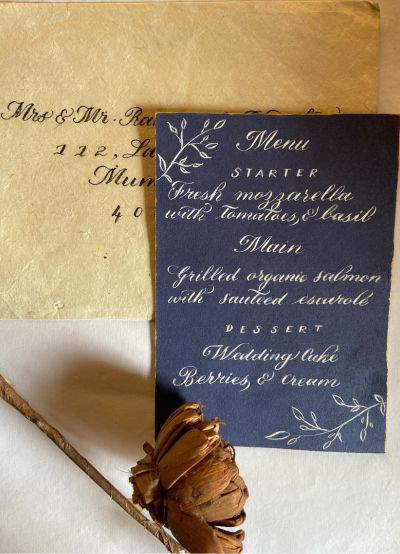 Mrs & Mr.
112,
40
Menu
STARTER
Fresh mozzarella
with Tomatoes, & basil
Main
Grilled organic salmon
with sautéed escarole
DESSERT
Wedding Cake
Berries, & Cream